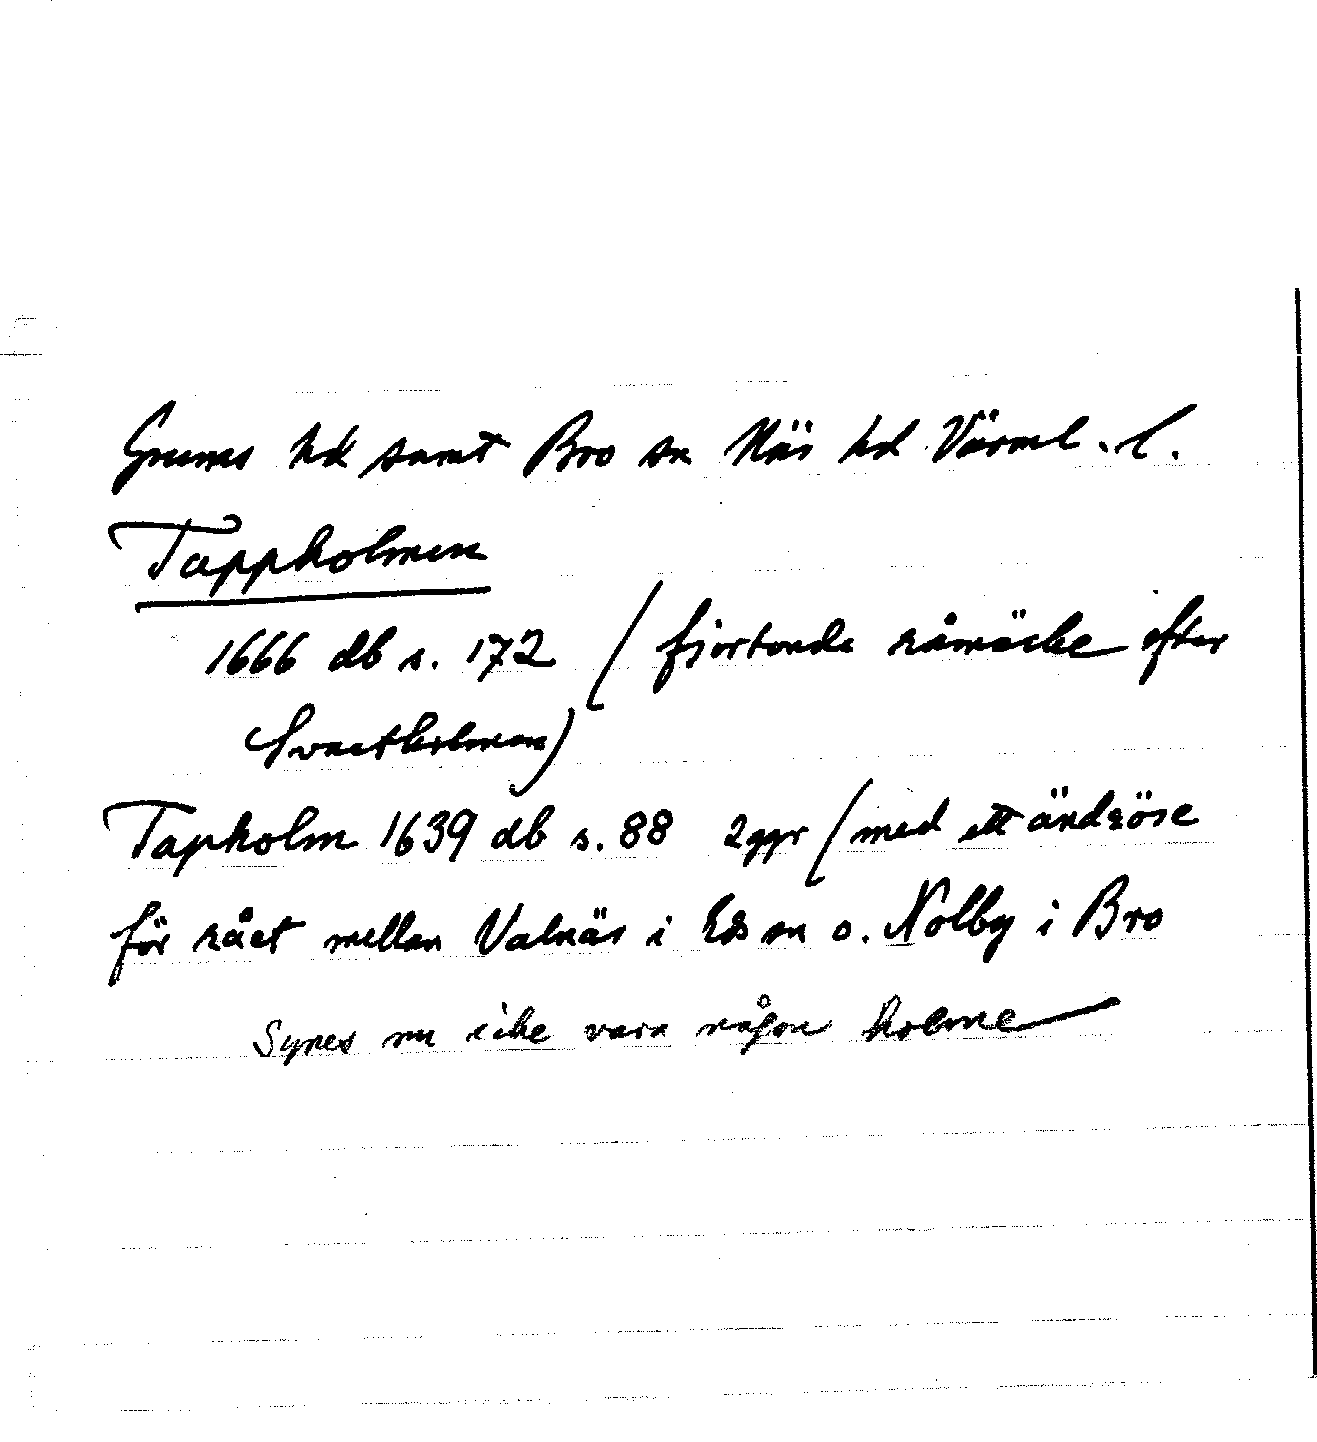 Grums hd samt Bro sn Näs hd Värml. l.
Tappholmen
1666 db s. 172 (fjortonde råmärke efter
Svartholmen)
Tapholm 1639 db s. 88 2ggr (med ett ändröse
för rået mellan Valnäs i Eds sn o. Nolby i Bro
Synes nu icke vara någon holme